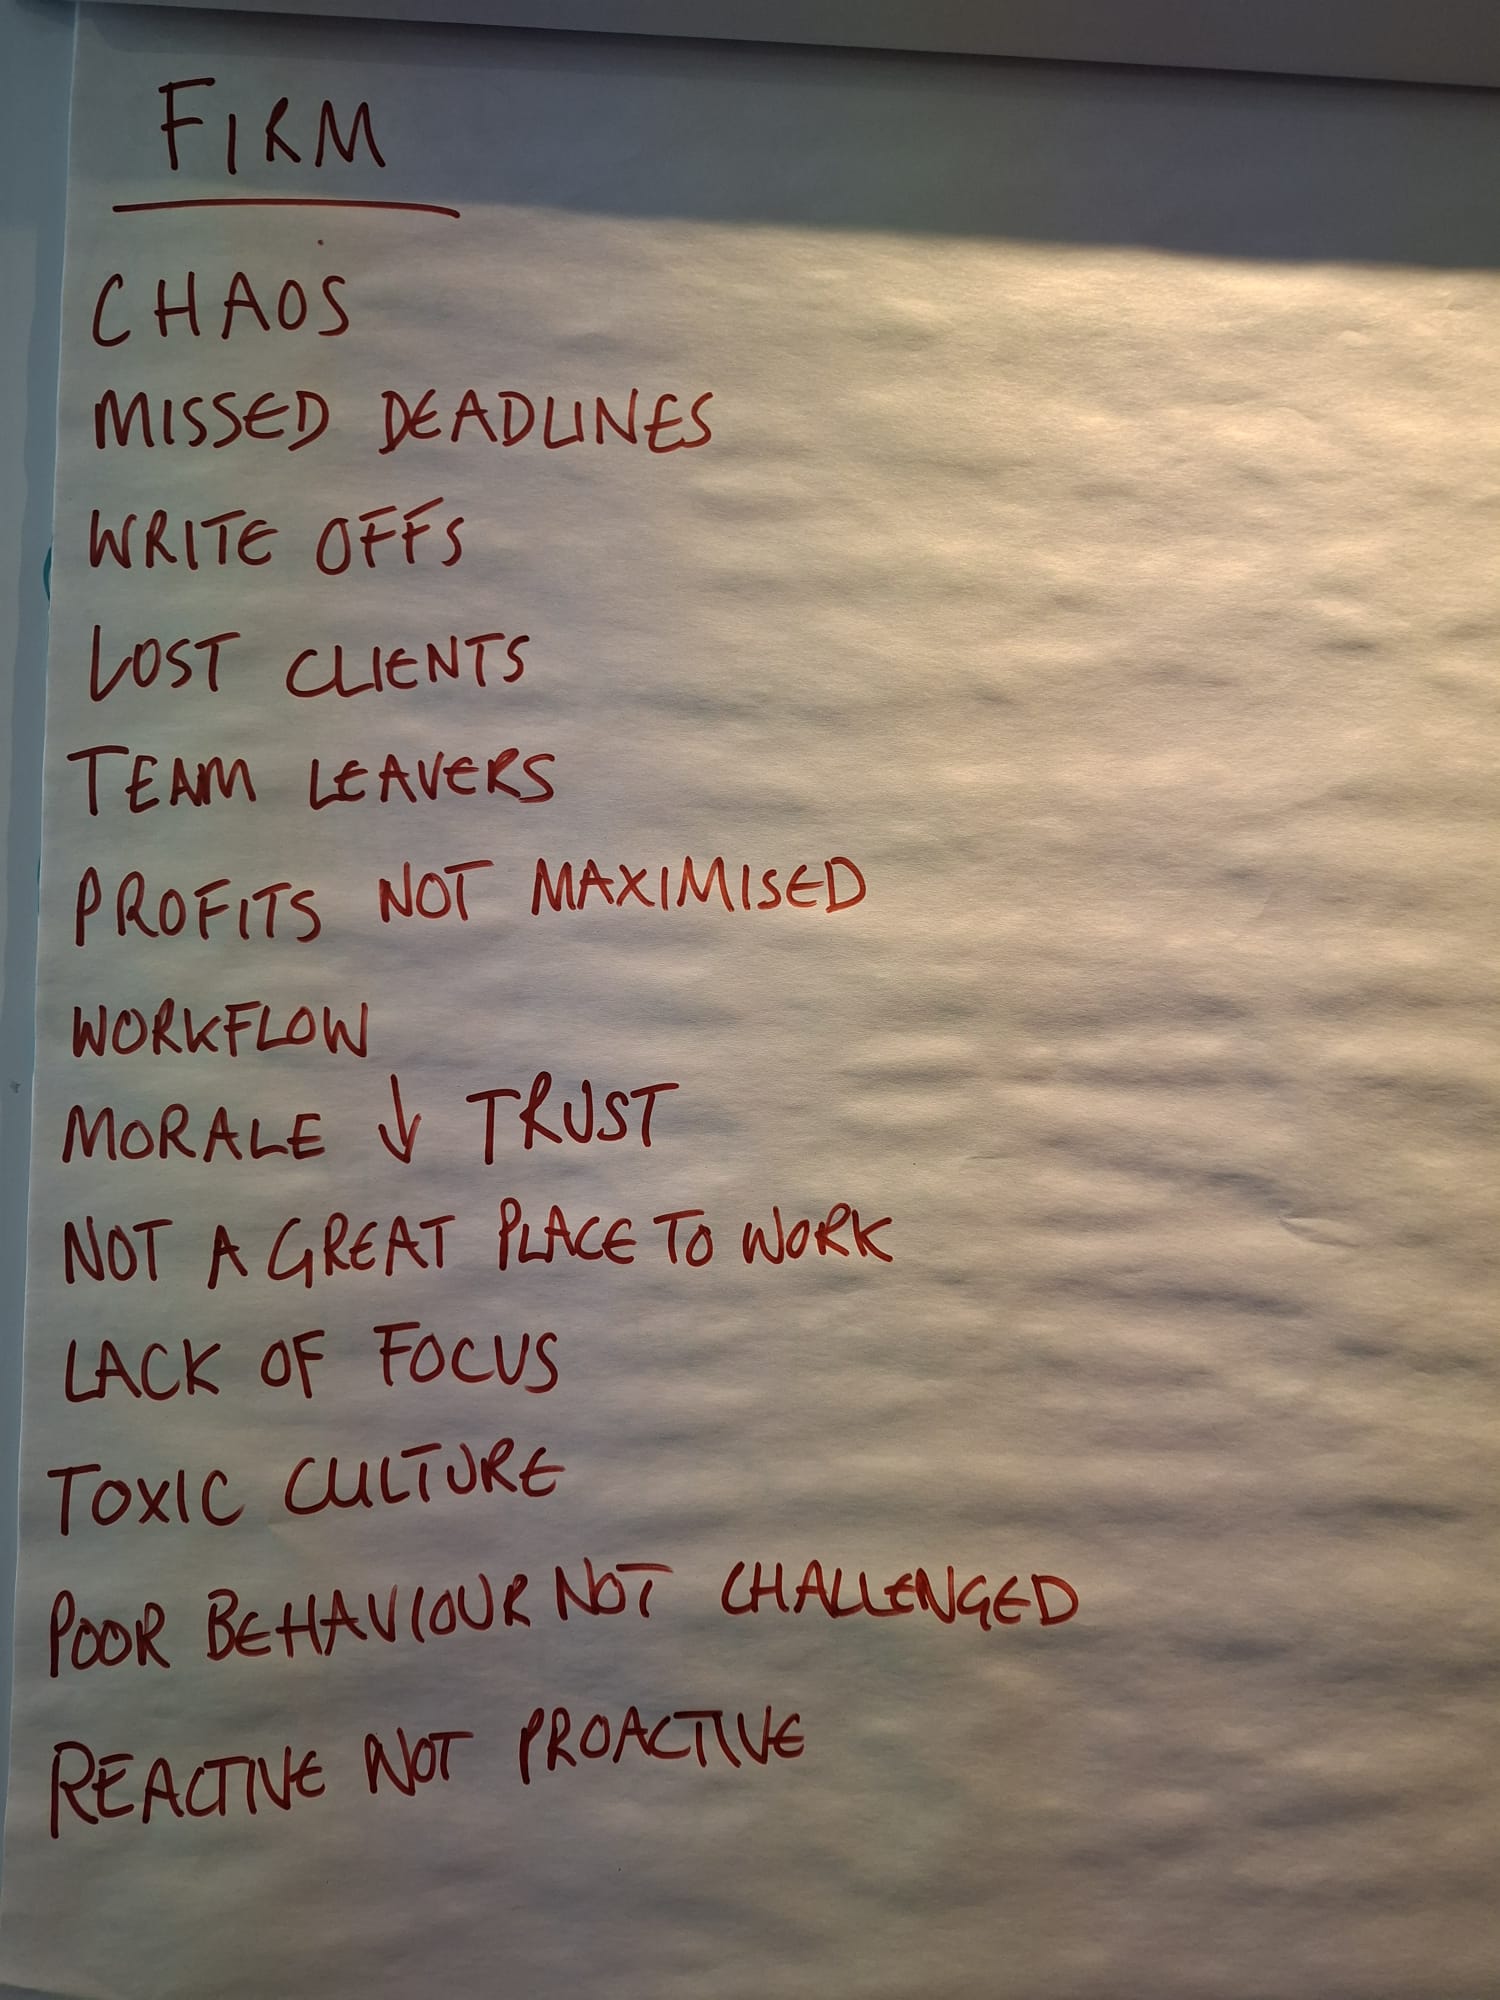 FIRM
CHAOS
MISSED DEADLINES
WRITE OFFS
LOST CLIENTS
TEAM LEAVERS
PROFITS NOT MAXIMISED
WORKFLOW
MORALE ↓ TRUST
NOT A GREAT PLACE TO WORK
LACK OF FOCUS
TOXIC CULTURE
POOR BEHAVIOUR NOT CHALLENGED
REACTIVE NOT PROACTIVE